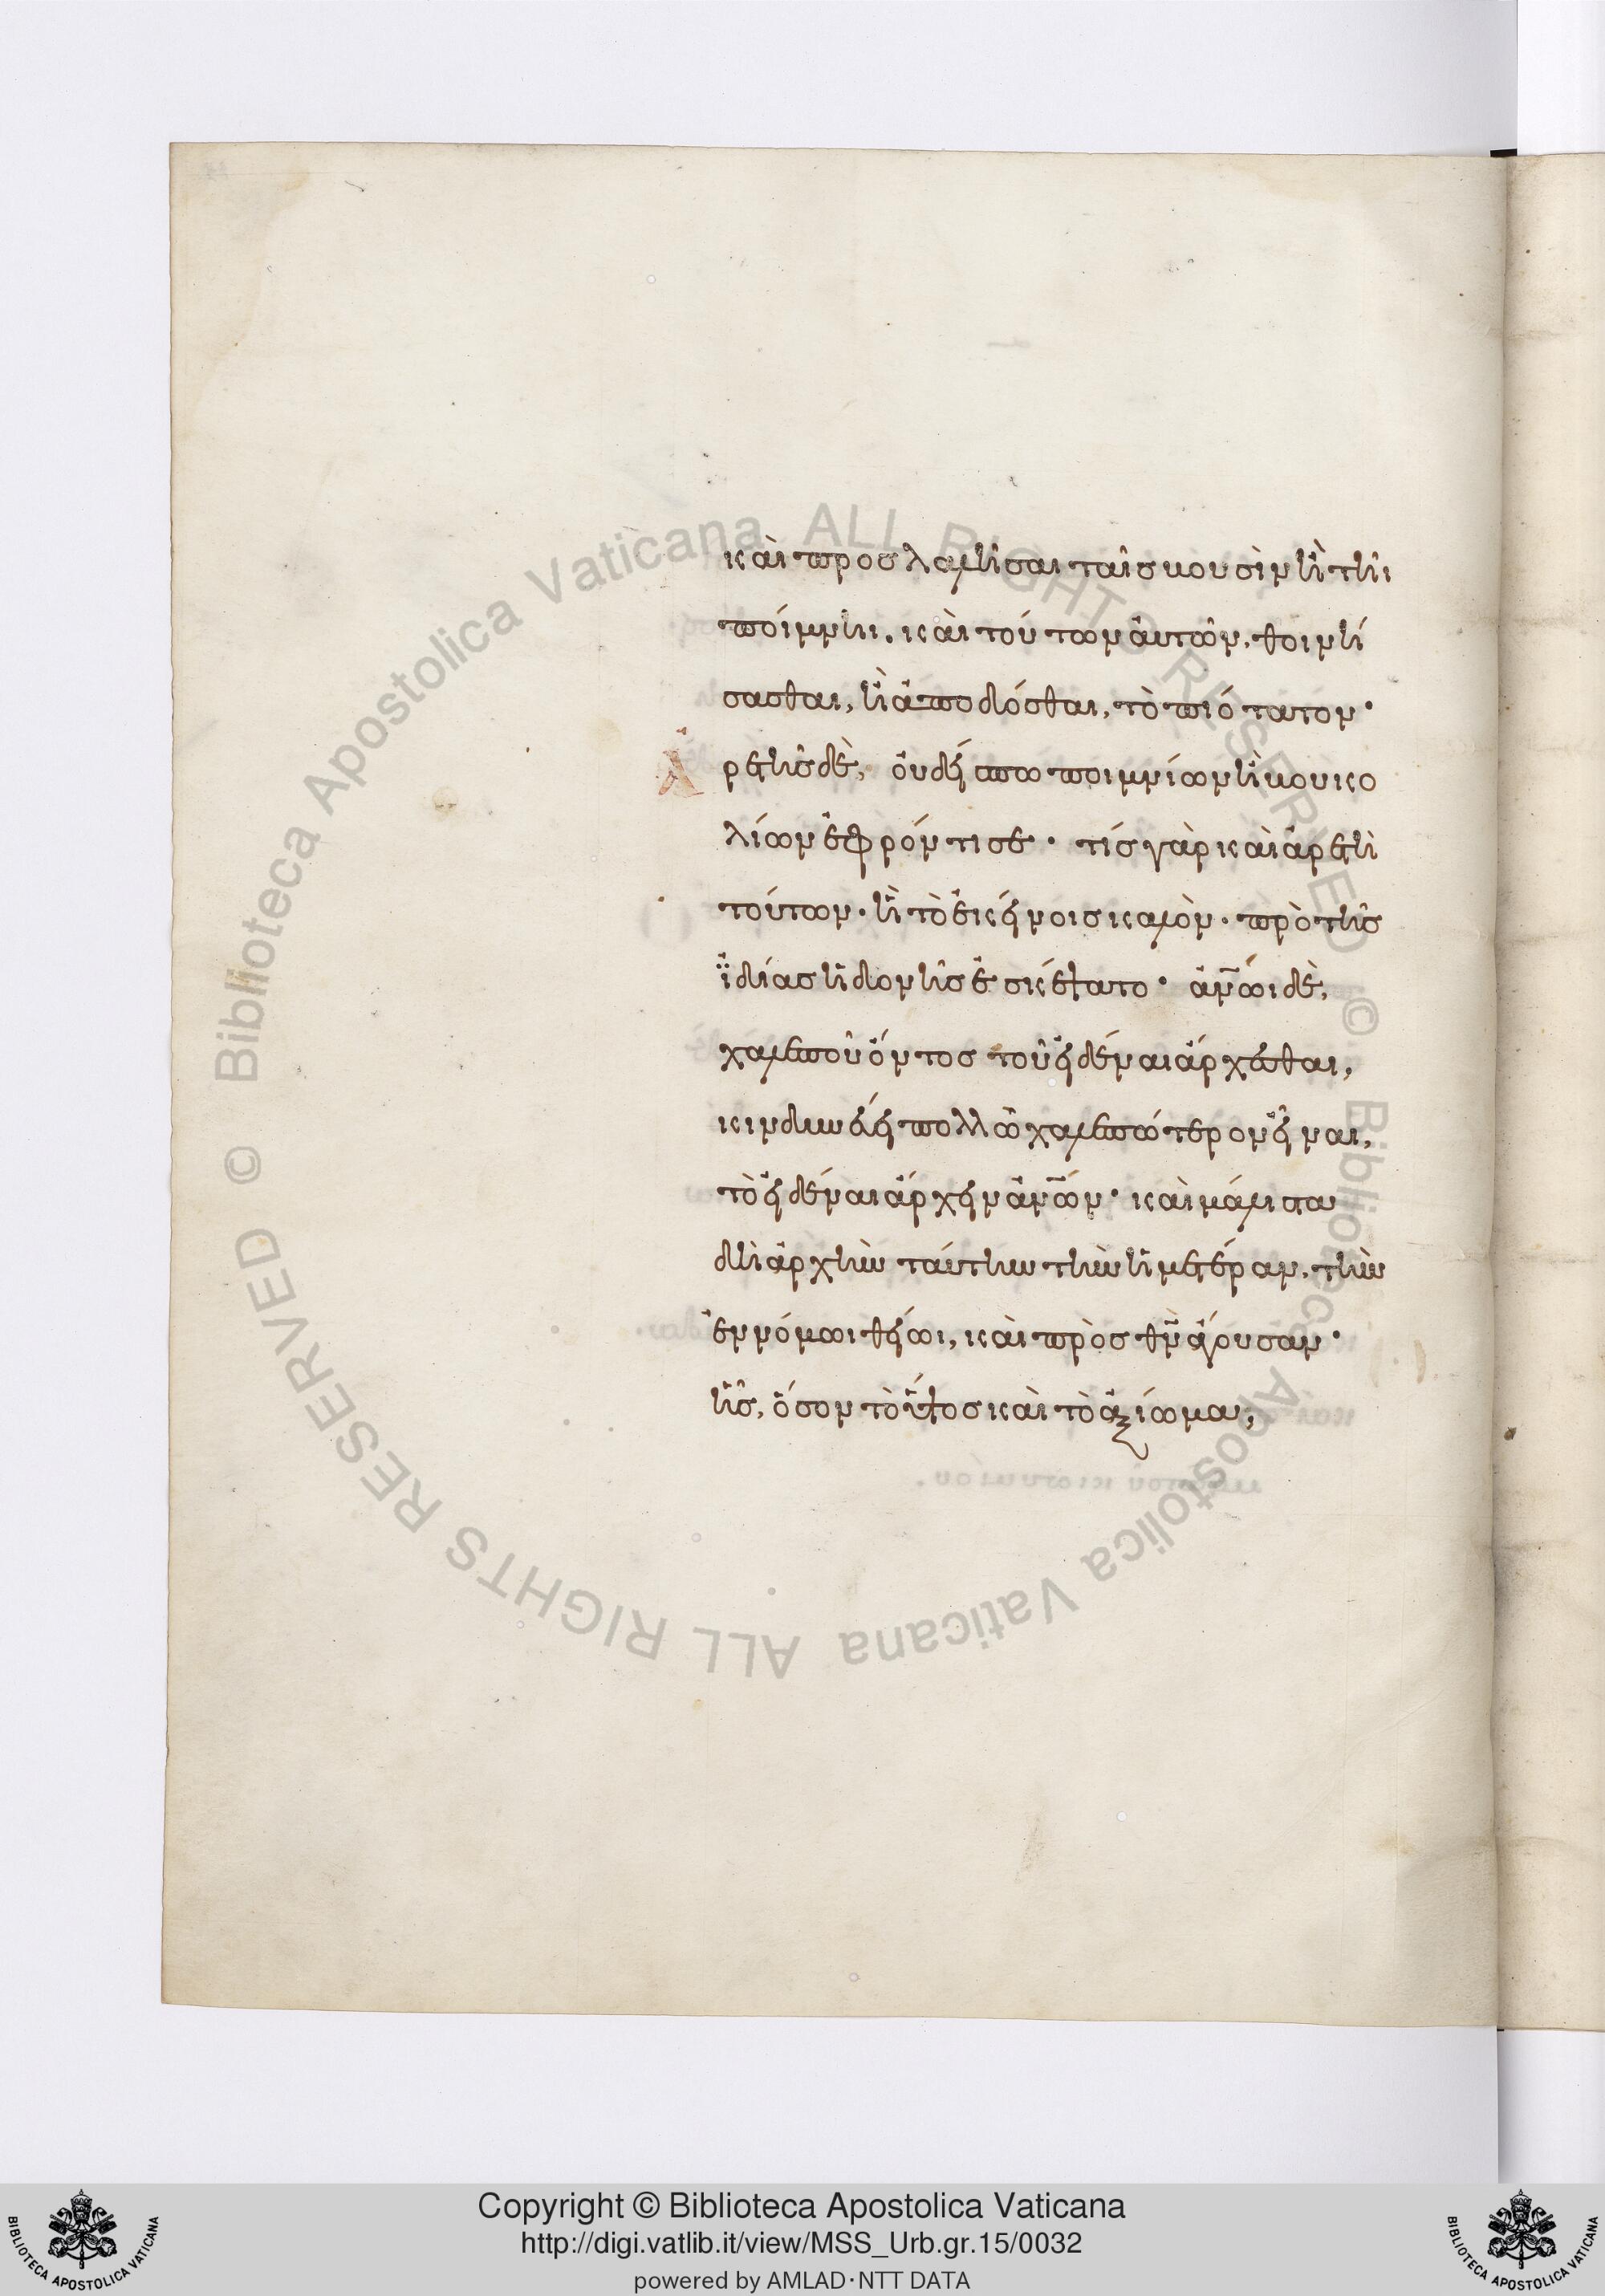 καὶ προσλαλῆσαι ταῖς βουσὶν ἢ τῆι
ποίμνηι. καὶ τούτων αὐτῶν, θοινή
σασθαι, ἢ ἀποδόσθαι, τὸ πιότατον·
Ἀρετῆς δὲ, οὐδέπω ποιμνίων ἢ βουκο
λίων ἐφρόντισε· τίς γὰρ καὶ ἀρετὴ
τούτων· ἢ τὸ ἐκείνοις καλὸν· πρὸ τῆς
ἰδίας ἡδονῆς ἐσκέψατο· ἀνῶι δὲ,
χαλεποῦ ὄντος τοῦ εἰδέναι ἄρχεσθαι,
κινδυνεύει πολλῶ χαλεπώτερον εἶναι,
τὸ εἰδέναι ἄρχειν ἀνῶν· καὶ μάλιστα
δὴ ἀρχὴν ταύτην τὴν ἡμετέραν, τὴν
ἐν νόμωι θείωι, καὶ πρὸς θν ἄγουσαν·
ἧς, ὅσον τὸ ὕψος καὶ τὸ ἀξίωμα,
© Biblioteca Apostolica Vaticana ALL RIGHTS RESERVED
© Biblioteca Apostolica Vaticana ALL RIGHTS RESERVED
Copyright © Biblioteca Apostolica Vaticana
http://digi.vatlib.it/view/MSS_Urb.gr.15/0032
powered by AMLAD·NTT DATA
BIBLIOTECA APOSTOLICA VATICANA
BIBLIOTECA APOSTOLICA VATICANA